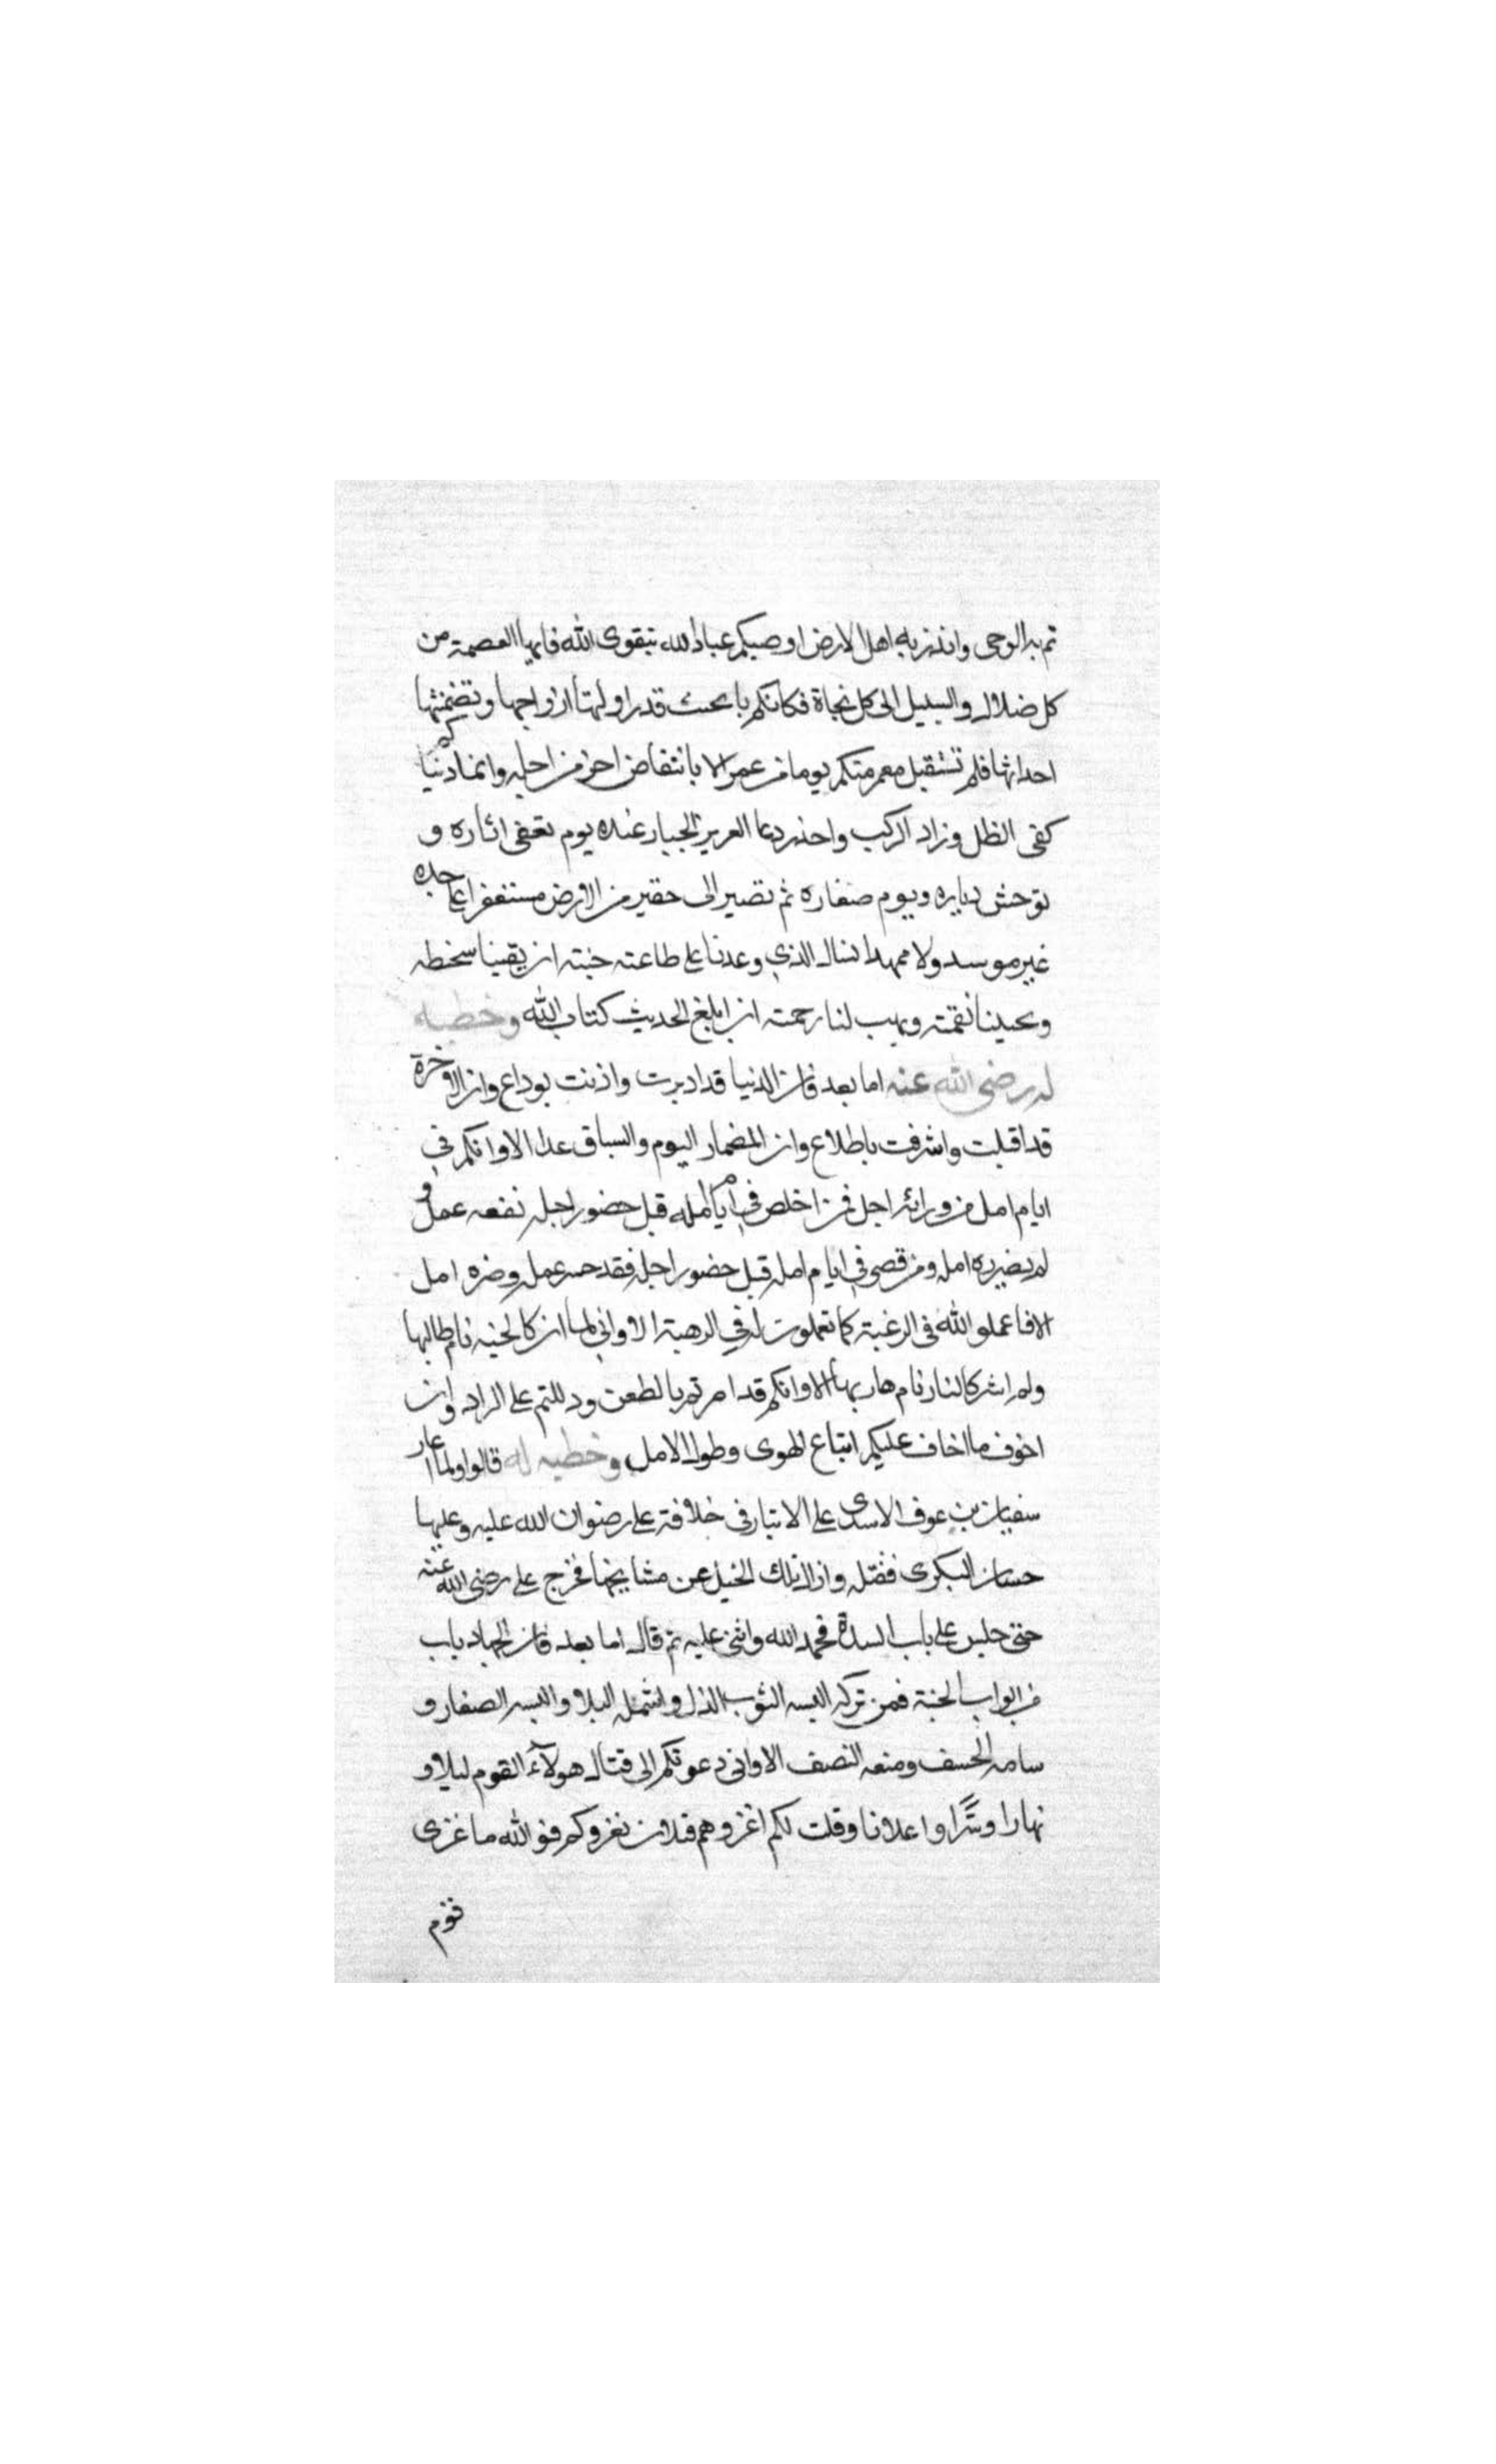 تم به الوحى وانذر به اهل الارض اوصيكم عباد الله بتقوى الله فانها العصمة من
كل ضلال والسبيل الى كل نجاة فكانكم بالجثث قد زاولتها ارواحها وتضمنتها
احداثها فلم تستقبل معمر منكم يوما من عمره الا بانتقاض اخر من اجله وانما دنياكم
كفى الظل وزاد الركب واحذر دعا العزيز الجبار عنده يوم تعفى اثاره و
توحش دياره وييوم صغاره ثم تصير الى حقير من الارض مستغفرا على خده
غير موسد ولا ممهد اسال الذي وعدنا على طاعته جنته ان يقينا سخطه
ويجنبنا نقمته ويهب لنا رحمته ان ابلغ الحديث كتاب الله وخطبه
له رضى الله عنه اما بعد فان الدنيا قد ادبرت واذنت بوداع وان الاخرة
قد اقبلت واشرفت باطلاع وان المضمار اليوم والسباق غدا الا وانكم في
ايام امل من ورائه اجل فمن اخلص في ايام امله قبل حضور اجله نفعه عمله و
لم يضرره امله ومن قصر في ايام امله قبل حضور اجله فقد خسر عمله وضره امله
الا فاعملو الله فى الرغبة كما تعملون له في الرهبة الا واني لم ار كالجنه نام طالبها
ولم ار كالنار نام هاربها الا وانكم قد امرتم بالظعن ودللتم على الزاد وان
اخوف ما اخاف عليكم اتباع الهوى وطول الامل وخطبه له قالوا ولما اغار
سفيان بن عوف الاسدى على الانبار فى خلافة على رضوان الله عليه وعليها
حسان البكرى فقتله وازال تلك الخيل عن مشايخها فخرج على رضى الله عنه
حتى جلس على باب السدة فحمد الله واثنى عليه ثم قال اما بعد فان الجهاد باب
من ابواب الجنة فمن تركه البسه الثوب الذل واشتمله البلا والبسه الصغار و
سامه الخسف ومنعه النصف الا وانى دعوتكم الى قتال هولآء القوم ليلا و
نهارا وسرًّا واعلانا وقلت لكم اغزوهم قبل ان يغزوكم فو الله ما غزى
قوم